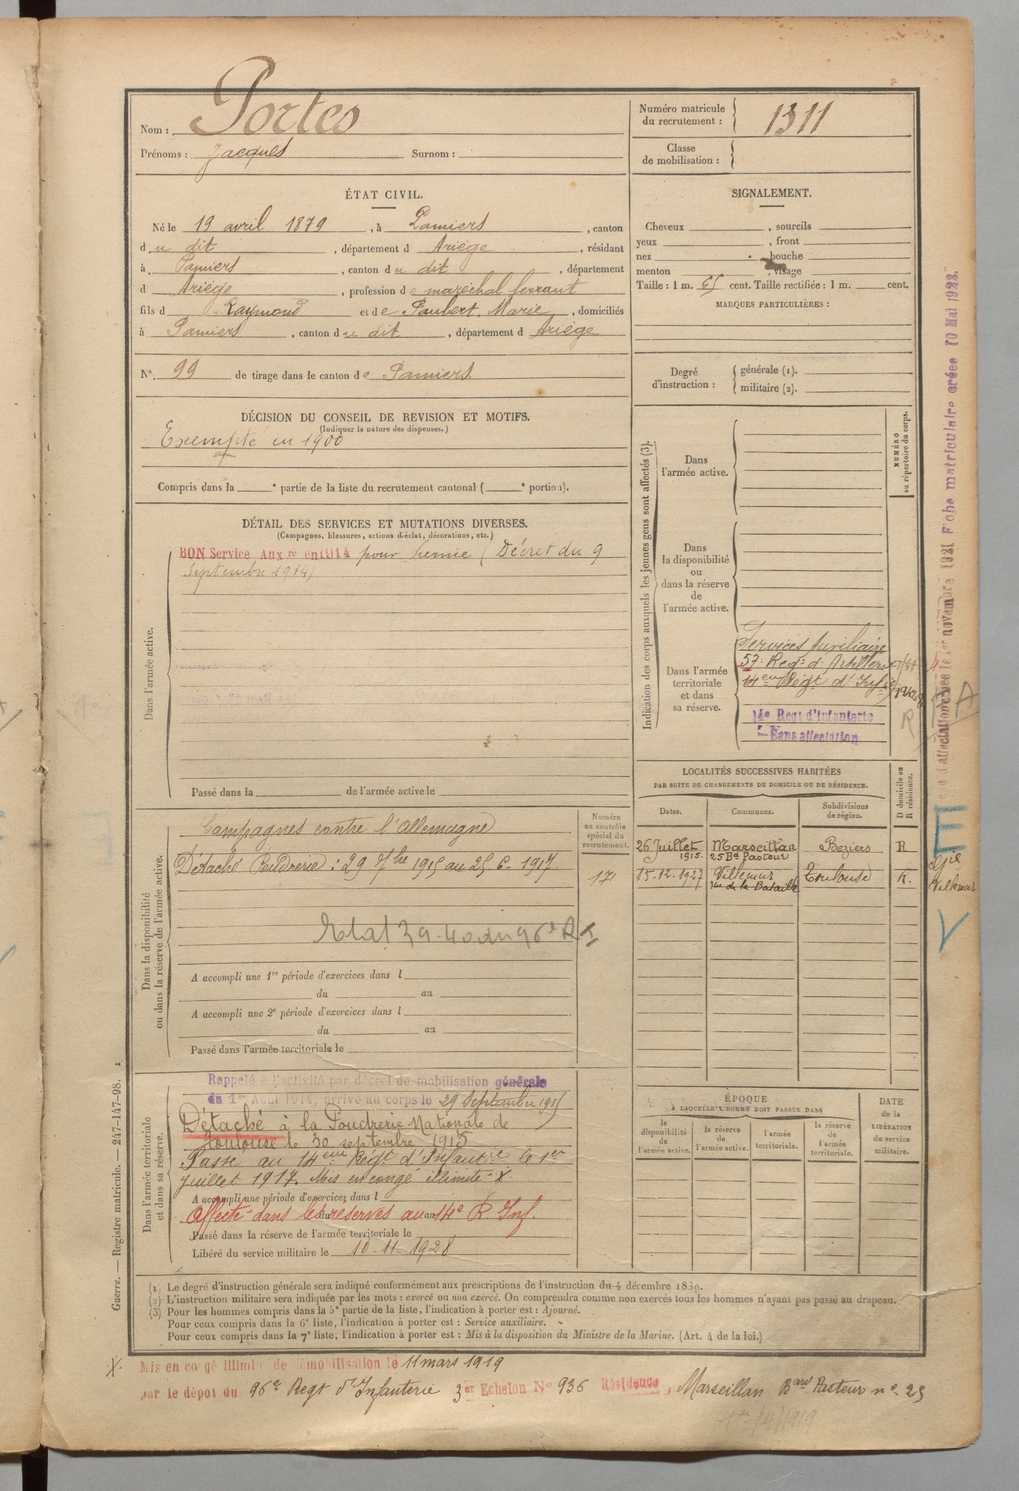 Nom : Portes
Prénoms : Jacques Surnom :
Numéro matricule du recrutement : 1311
Classe de mobilisation :
ÉTAT CIVIL.
Né le 19 avril 1879, à Pamiers, canton
du dit, département d Ariège, résidant
à Pamiers, canton du dit, département
d Ariège, profession de maréchal ferrant
fils d Raymond et de Paubert, Marie, domiciliés
à Pamiers, canton du dit, département d Ariège
N° 99 de tirage dans le canton de Pamiers
DÉCISION DU CONSEIL DE REVISION ET MOTIFS.
(Indiquer la nature des dispenses.)
Exempté en 1900
Compris dans la e partie de la liste du recrutement cantonal ( e portion).
DÉTAIL DES SERVICES ET MUTATIONS DIVERSES.
(Campagnes, blessures, actions d'éclat, décorations, etc.)
Dans l'armée active.
BON Service Aux re en 1914 pour hernie (Décret du 9
Septembre 1914)
Passé dans la de l'armée active le
Dans la disponibilité ou dans la réserve de l'armée active.
Campagnes contre l'Allemagne
Détaché Poudrerie : 29 7bre 1915 au 25.6.1917
A accompli une 1re période d'exercices dans l
du au
A accompli une 2e période d'exercices dans l
du au
Passé dans l'armée territoriale le
Numéro au contrôle spécial du recrutement.
Dans l'armée territoriale et dans sa réserve.
Rappelé à l'activité par décret de mobilisation générale
du 1er Août 1914, arrivé au corps le 29 Septembre 1915
Détaché à la Poudrerie Nationale de
Toulouse le 30 septembre 1915
Passé au 14eme Régt d'Infantrie le 1er
juillet 1917. Mis en congé illimité X
A accompli une période d'exercices dans l
Affecté dans les réserves au 14e R. Inf.
du au
Passé dans la réserve de l'armée territoriale le
Libéré du service militaire le 10-11-1928
SIGNALEMENT.
Cheveux , sourcils
yeux , front
nez , bouche
menton , visage
Taille : 1 m. 65 cent. Taille rectifiée : 1 m. cent.
MARQUES PARTICULIÈRES :
Degré d'instruction : générale (1).
militaire (2).
Indication des corps auxquels les jeunes gens sont affectés (3).
NUMÉRO au répertoire du corps.
Dans l'armée active.
Dans la disponibilité ou dans la réserve de l'armée active.
Dans l'armée territoriale et dans sa réserve.
Services Auxiliaire
57e Régt d'Artillerie
14eme Régt d'Inf
14e Regt d'Infanterie
Sans affectation
LOCALITÉS SUCCESSIVES HABITÉES
PAR SUITE DE CHANGEMENTS DE DOMICILE OU DE RÉSIDENCE.
Dates. Communes. Subdivisions de région. D domicile ou R résidence.
26 Juillet 1915. Marseillan 25 Bd Pasteur Béziers R
15-12-1927 Villemur rue de la Bataille Toulouse R.
ÉPOQUE
À LAQUELLE L'HOMME DOIT PASSER DANS
la disponibilité de l'armée active. la réserve de l'armée active. l'armée territoriale. la réserve de l'armée territoriale.
DATE de la LIBÉRATION du service militaire.
(1) Le degré d'instruction générale sera indiqué conformément aux prescriptions de l'instruction du 4 décembre 1889.
(2) L'instruction militaire sera indiquée par les mots : exercé ou non exercé. On comprendra comme non exercés tous les hommes n'ayant pas passé au drapeau.
(3) Pour les hommes compris dans la 5e partie de la liste, l'indication à porter est : Ajourné.
Pour ceux compris dans la 6e liste, l'indication à porter est : Service auxiliaire.
Pour ceux compris dans la 7e liste, l'indication à porter est : Mis à la disposition du Ministre de la Marine. (Art. 4 de la loi.)
X. Mis en congé illimité de démobilisation le 11 mars 1919
par le dépôt du 96e Regt d'Infanterie 3er Echelon N° 936 Résidence, Marseillan Bard Pasteur n° 25
Guerre. — Registre matricule. — 247-147-98.
novembre 1921 Fiche matriculaire créée 10 Mai 1922.